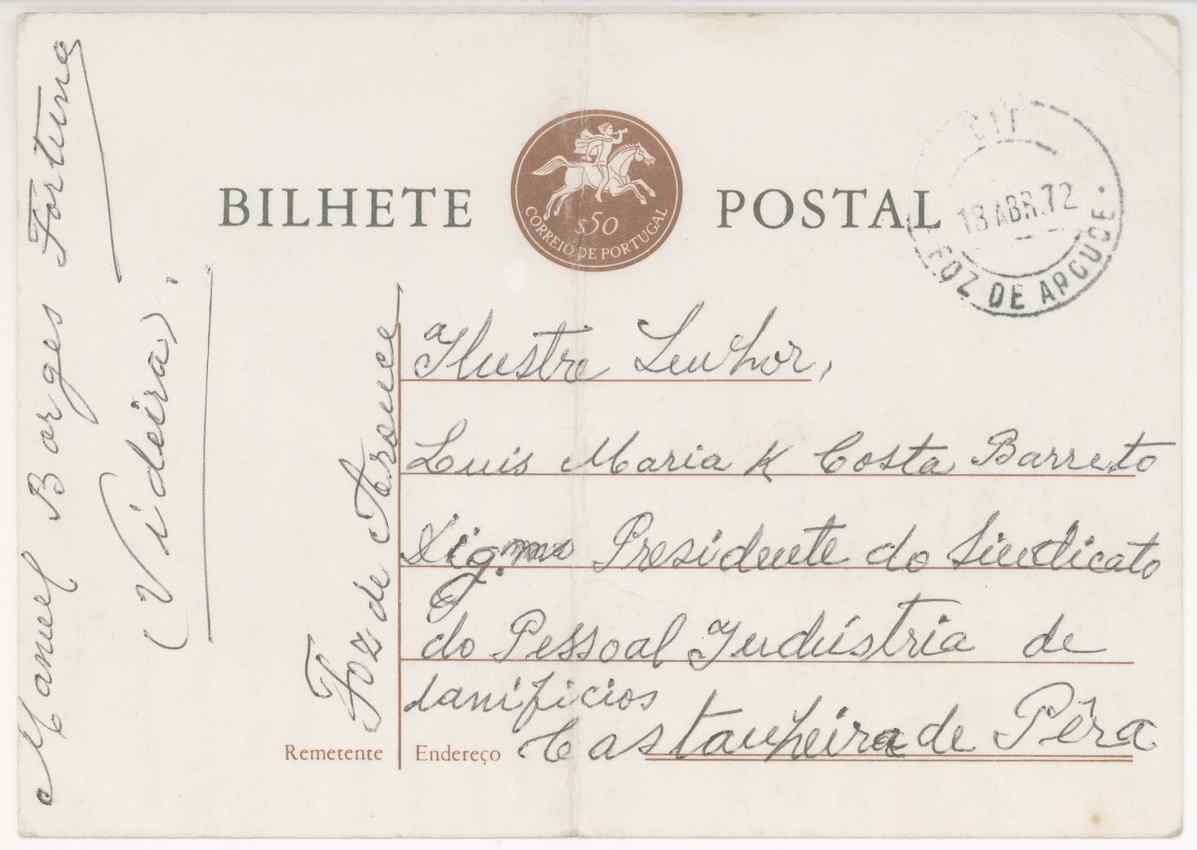 BILHETE POSTAL
$50
CORREIO DE PORTUGAL
18 ABR.72
FOZ DE AROUCE
Manuel Borges Fortuna
(Videira),
Foz de Arouce
Ilustre Senhor,
Luis Maria K Costa Barreto
Dig.mo Presidente do Sindicato
do Pessoal Indústria de
lanificios
Castanheira de Pêra
Remetente
Endereço